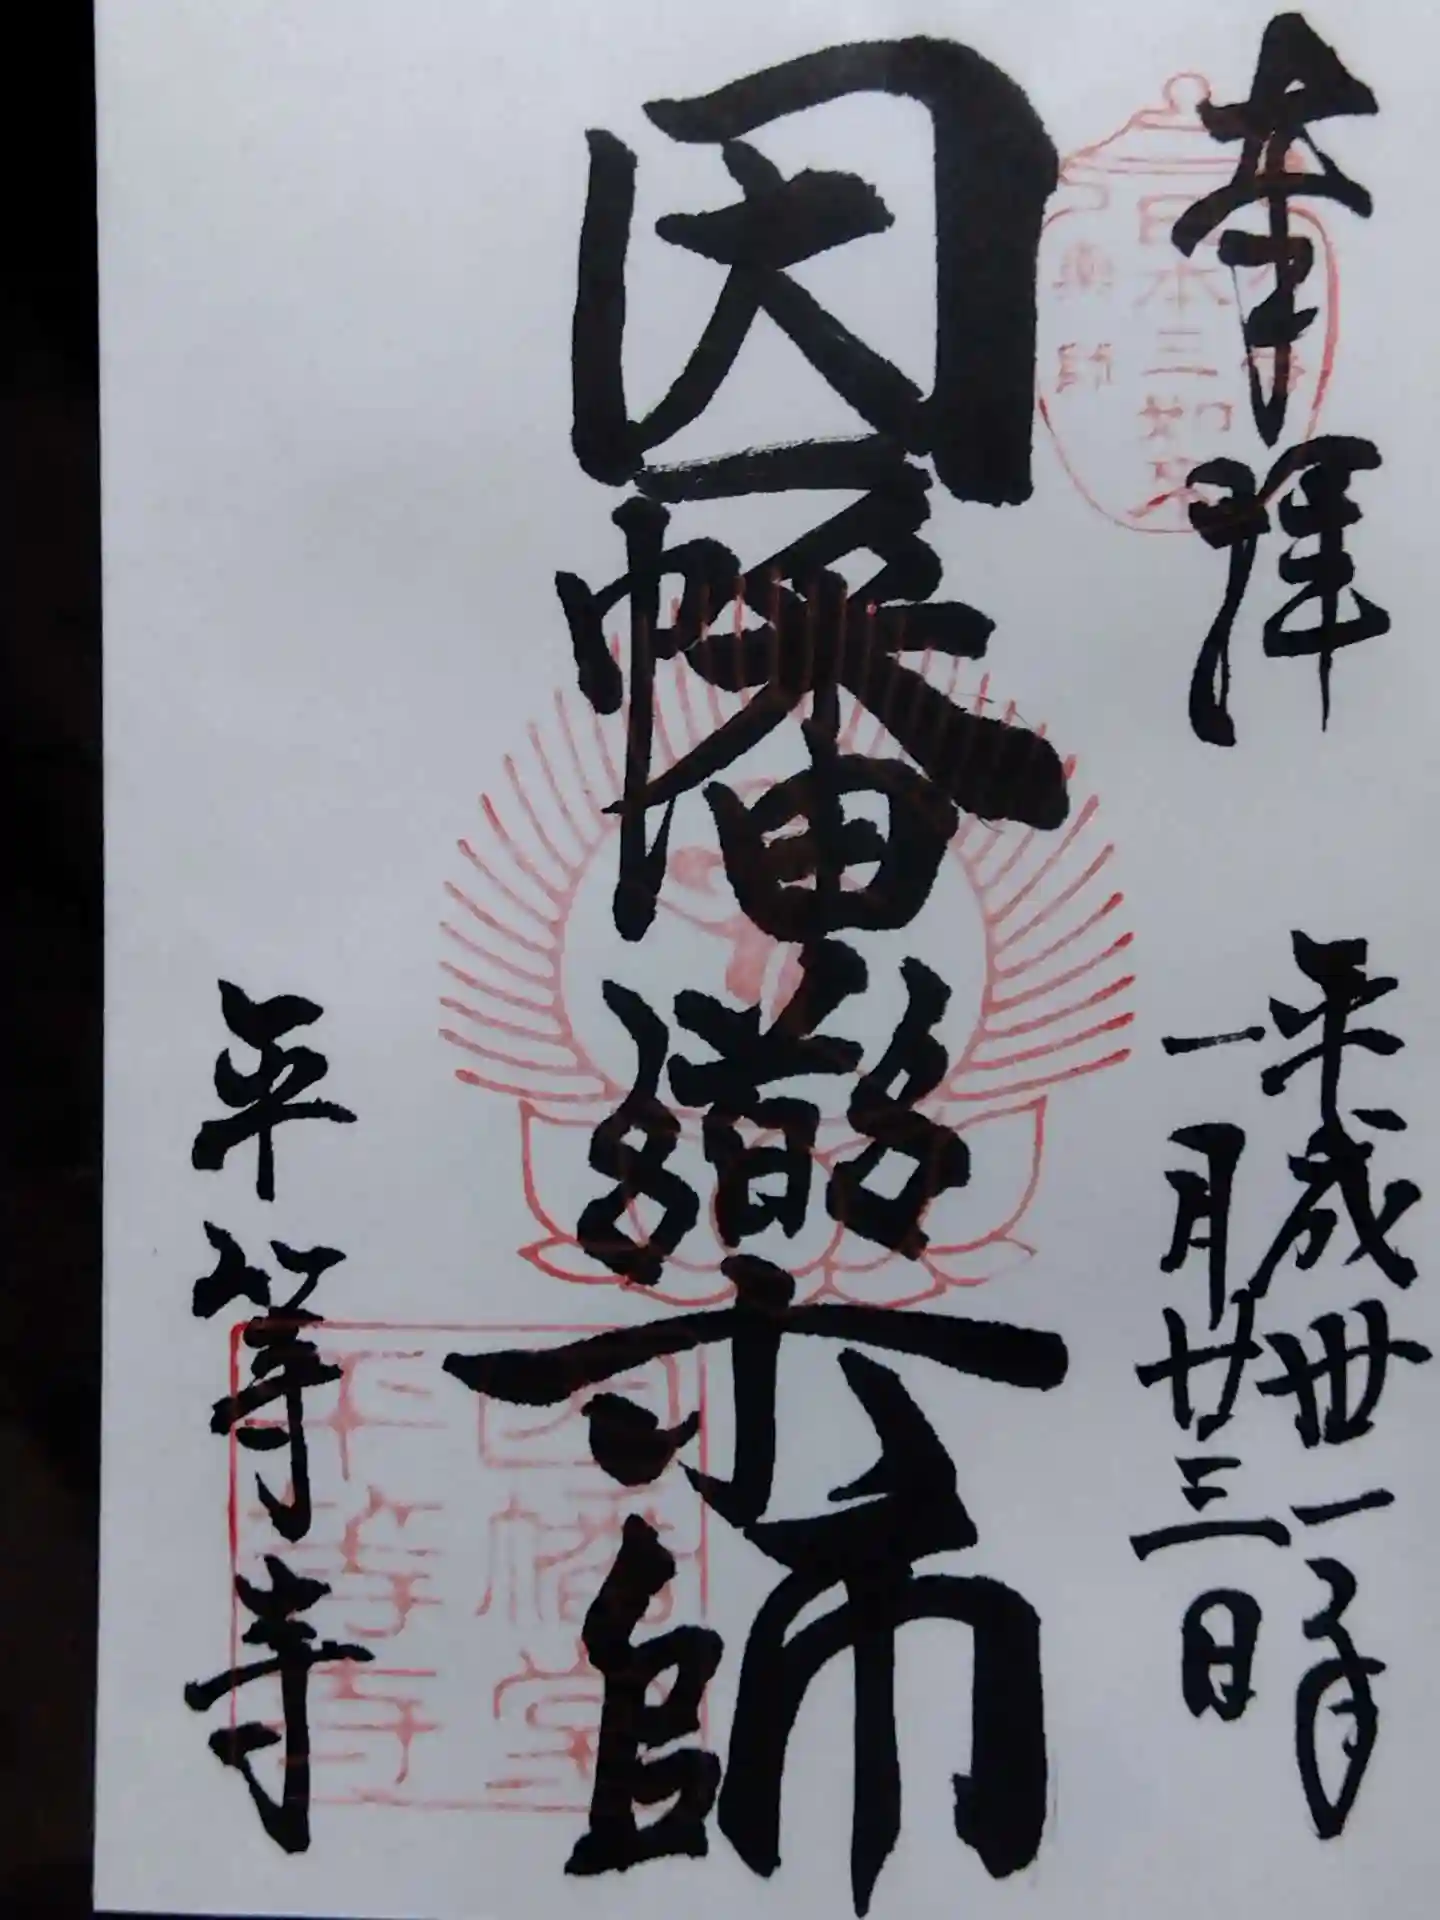 奉拝
平成卅一年
一月廿三日
因幡薬師
平等寺
日本三如来
薬師
因幡堂
平等寺